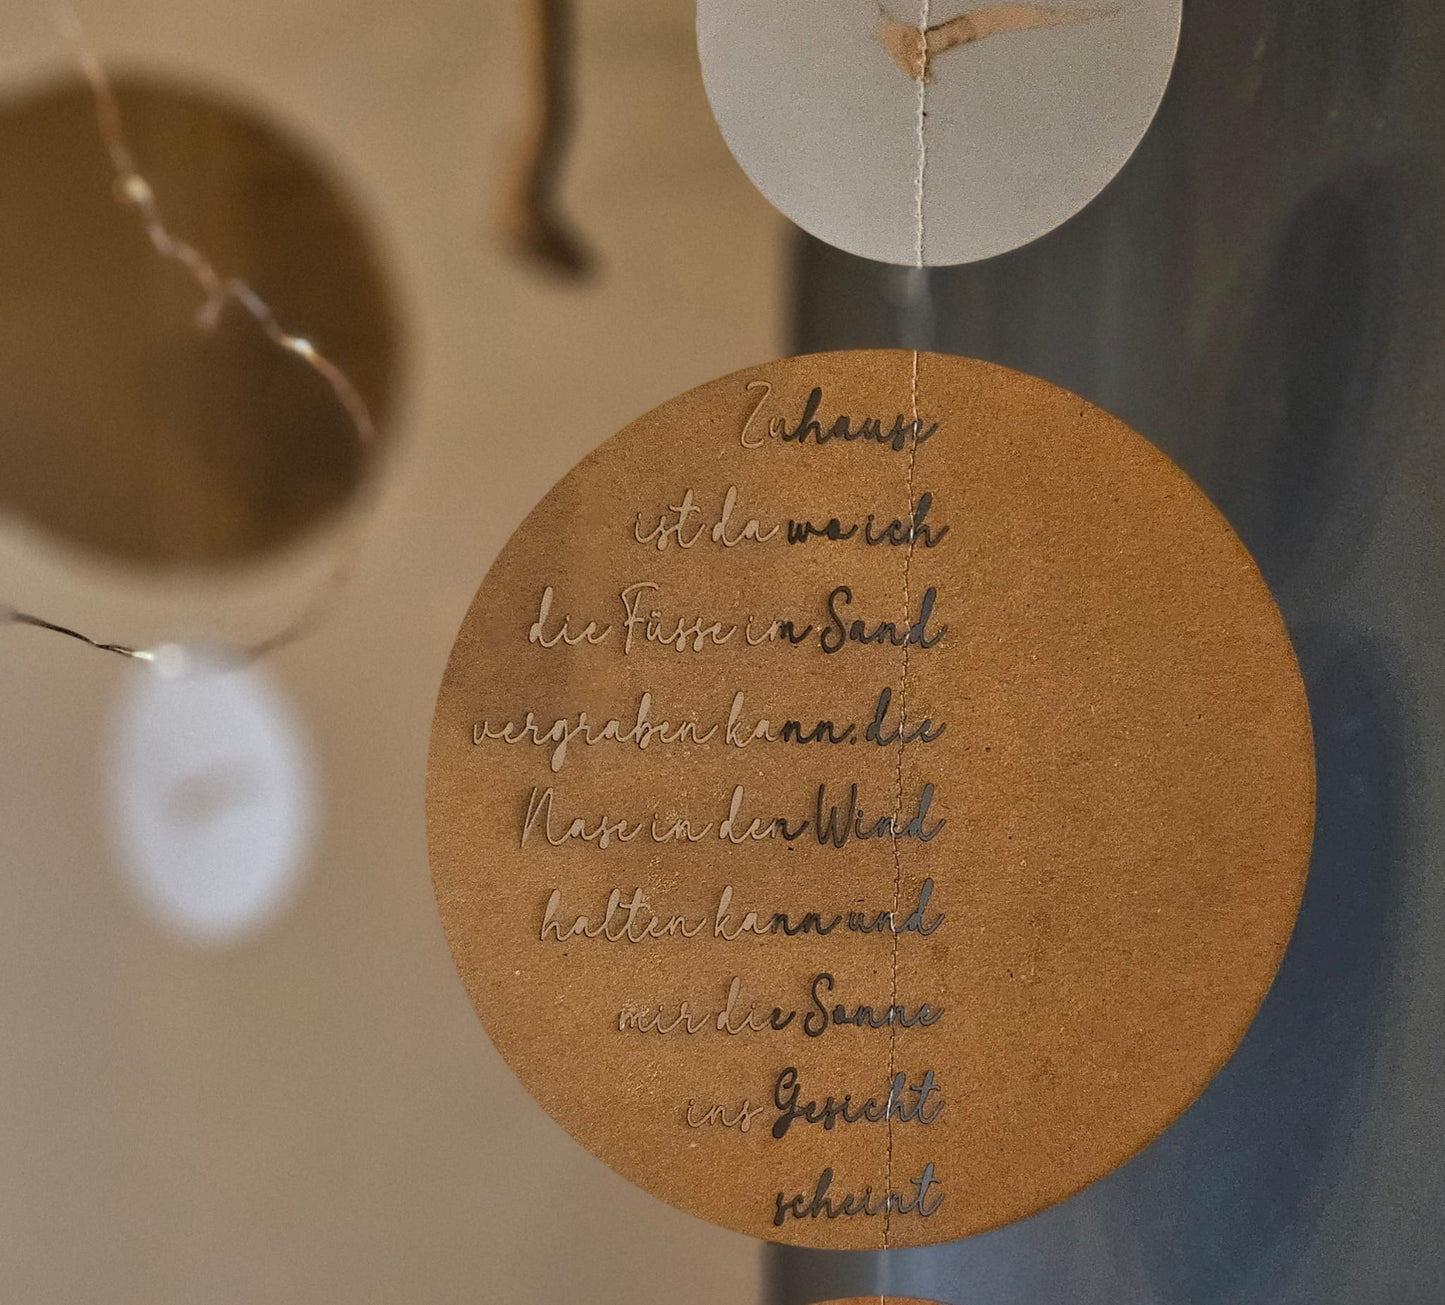 Zuhause
ist da wo ich
die Füsse im Sand
vergraben kann, die
Nase in den Wind
halten kann und
mir die Sonne
ins Gesicht
scheint